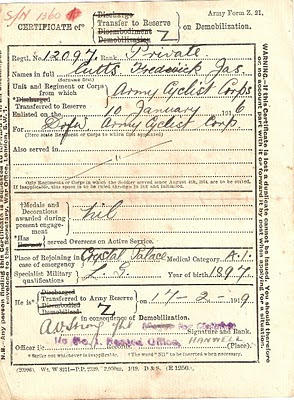 S/N 1360
Army Form Z. 21.
CERTIFICATE of Discharge Transfer to Reserve Disembodiment Demobilization Z on Demobilization.
Regtl. No. 12097 Rank Private
Names in full Frederick Jas.
(Surname first)
Unit and Regiment or Corps from which Army Cyclist Corps
*Discharged
Transferred to Reserve
Enlisted on the 10 January 6
For Army Cyclist Corps
(Here state Regiment or Corps to which first appointed)
Also served in
"
Only Regiments or Corps in which the Soldier served since August 4th, 1914, are to be stated.
If inapplicable, this space is to be ruled through in ink and initialled.
†Medals and Decorations awarded during present engagement nil
*Has served Overseas on Active Service.
Place of Rejoining in case of emergency Crystal Palace Medical Category A.1.
Specialist Military qualifications Year of birth 1897
He is Discharged Transferred to Army Reserve Disembodied Demobilized Z on 17-2-1919
in consequence of Demobilization.
Signature and Rank.
Officer i/c No. 1. Record Office, HANWELL (Place).
* Strike out whichever is inapplicable. † The word "Nil" to be inserted when necessary.
WARNING.—If this Certificate is lost a duplicate cannot be issued. You should therefore on no account part with it or forward it by post when applying for a situation.